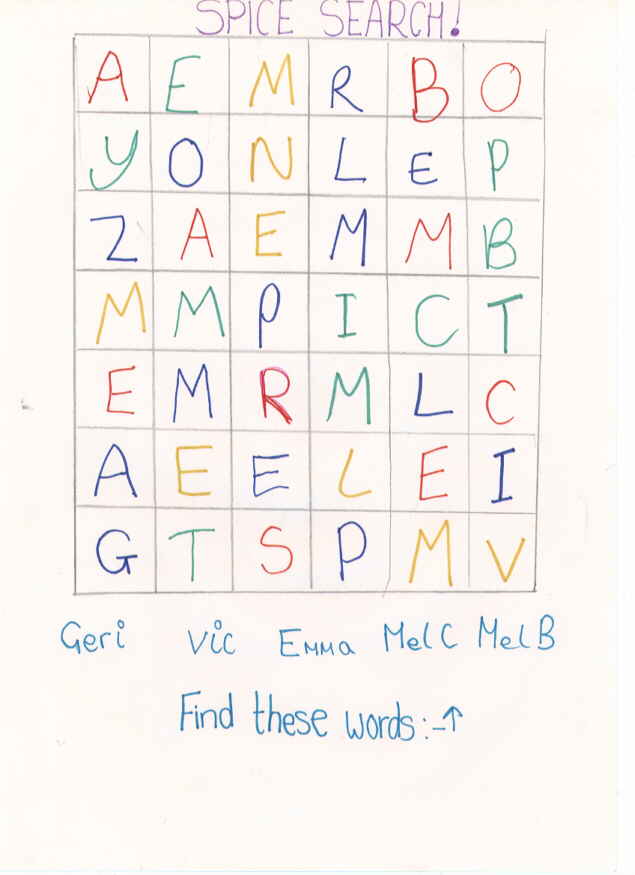 SPICE SEARCH!
A E M R B O
Y O N L E P
Z A E M M B
M M P I C T
E M R M L C
A E E L E I
G T S P M V
Geri Vic Emma Mel C Mel B
Find these words:-↑